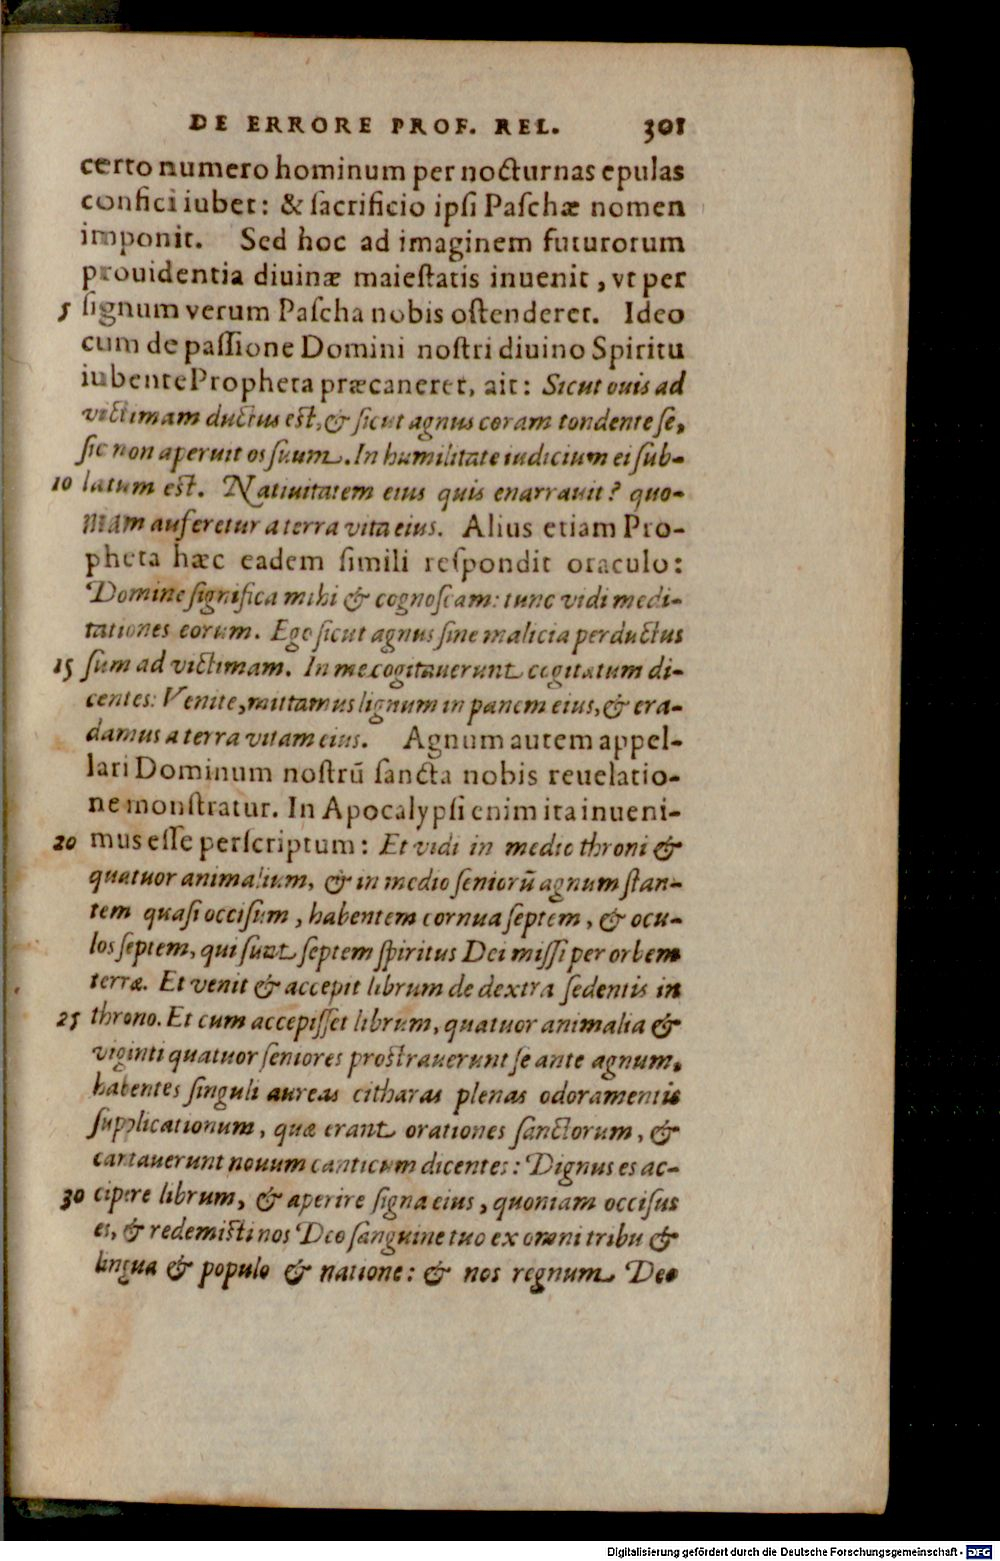 DE ERRORE PROF. REL. 301
certo numero hominum per nocturnas epulas
confici iubet: & ſacrificio ipſi Paſchæ nomen
imponit. Sed hoc ad imaginem futurorum
prouidentia diuinæ maieſtatis inuenit, vt per
5 ſignum verum Paſcha nobis oſtenderet. Ideo
cum de paſſione Domini noſtri diuino Spiritu
iubente Propheta præcaneret, ait: Sicut ouis ad
victimam ductus est, & ſicut agnus coram tondente ſe,
ſic non aperuit os ſuum. In humilitate iudicium ei ſub-
10 latum est. Natiuitatem eius quis enarrauit? quo-
niam auferetur a terra vita eius. Alius etiam Pro-
pheta hæc eadem ſimili reſpondit oraculo:
Domine ſignifica mihi & cognoſcam: tunc vidi medi-
tationes eorum. Ego ſicut agnus ſine malicia perductus
15 ſum ad victimam. In me cogitauerunt cogitatum di-
centes: Venite, mittamus lignum in panem eius, & era-
damus a terra vitam eius. Agnum autem appel-
lari Dominum noſtrū ſancta nobis reuelatio-
ne monſtratur. In Apocalypſi enim ita inueni-
20 mus eſſe perſcriptum: Et vidi in medio throni &
quatuor animalium, & in medio ſeniorū agnum ſtan-
tem quaſi occiſum, habentem cornua ſeptem, & ocu-
los ſeptem, qui ſunt ſeptem ſpiritus Dei miſſi per orbem
terræ. Et venit & accepit librum de dextra ſedentis in
25 throno. Et cum accepiſſet librum, quatuor animalia &
viginti quatuor ſeniores prostrauerunt ſe ante agnum,
habentes ſinguli aureas citharas plenas odoramentis
ſupplicationum, quæ erant orationes ſanctorum, &
cantauerunt nouum canticum dicentes: Dignus es ac-
30 cipere librum, & aperire ſigna eius, quoniam occiſus
es, & redemisti nos Deo ſanguine tuo ex omni tribu &
lingua & populo & natione: & nos regnum Deo
Digitalisierung gefördert durch die Deutsche Forschungsgemeinschaft - DFG